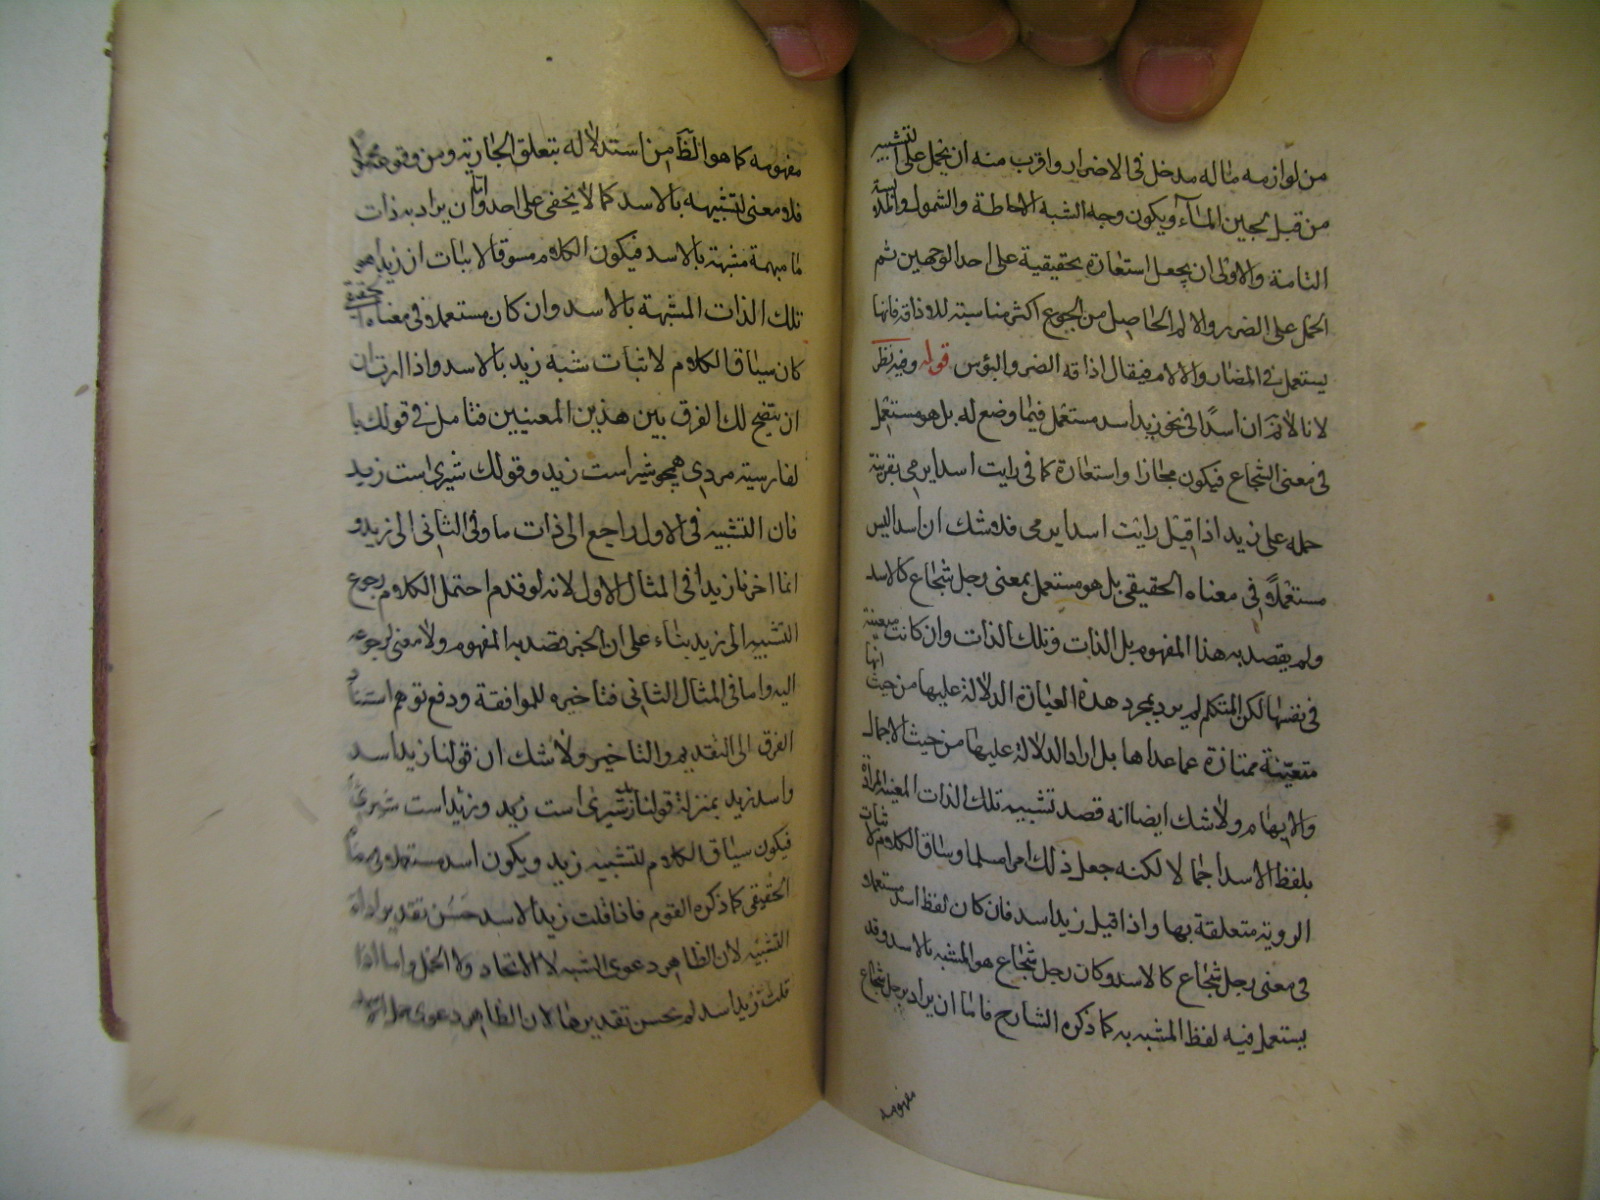 من لوازمه ماله مدخل فى الاضرار واقرب منه ان يحمل على التشبيه
من قبل لجين الماء ويكون وجه الشبه الاحاطة والشمول والملابسة
التامة والاولى ان يجعل استعارة تحقيقية على احد الوجهين ثم
الحمل على الضرر والالم الحاصل من الجوع اكثر مناسبة للاذاقة فانها
يستعمل فى المضار والالام فيقال اذاقه الضر والبؤس قوله وفيه نظر
لانا لانم ان اسدا فى نحو زيد اسد مستعمل فيما وضع له بل هو مستعمل
فى معنى الشجاع فيكون مجازا واستعارة كما فى رايت اسدا يرمى بقرينة
حمله على زيد اذا قيل رايت اسدا يرمى فلا شك ان اسدا ليس
مستعملا فى معناه الحقيقى بل هو مستعمل بمعنى رجل شجاع كالاسد
ولم يقصد به هذا المفهوم بل الذات وتلك الذات وان كانت معينة
فى نفسها لكن المتكلم لم يرد بمجرد هذه العبارة الدلالة عليها من حيث انها
متعينة ممتازة عما عداها بل اراد الدلالة عليها من حيث الاجمال
والايهام ولا شك ايضا انه قصد تشبيه تلك الذات المعينة المرادة
بلفظ الاسد اجمالا لكنه جعل ذلك امرا مسلما وساق الكلام لاثبات
الروية متعلقة بها واذا قيل زيد اسد فان كان لفظ اسد مستعملا
فى معنى رجل شجاع كالاسد وكان رجل شجاع هو المشبه بالاسد وقد
يستعمل فيه لفظ المشبه به كما ذكره الشارح فاما ان يراد برجل شجاع
مفهومه
مفهومه كما هو الظ من استدلاله بتعلق الجار به ومن وقوعه محمولا
فلا معنى لتشبيهه بالاسد كما لا يخفى على احد واما ان يراد به ذات
ما مبهمة مشبهة بالاسد فيكون الكلام مسوقا لاثبات ان زيدا هو
تلك الذات المشبهة بالاسد وان كان مستعملا فى معناه الحقيقى
كان سياق الكلام لاثبات شبه زيد بالاسد واذا اردت
ان يتضح لك الفرق بين هذين المعنيين فتامل فى قولك با
لفارسية مردى همچو شير است زيد وقولك شيرى است زيد
فان التشبيه فى الاول راجع الى ذات ما وفى الثانى الى زيد و
انما اخرنا زيدا فى المثال الاول لانه لو قدم احتمل الكلام رجوع
التشبيه الى زيد بناء على ان الخبر قصد به المفهوم ولا معنى لرجوعه
اليه واما فى المثال الثانى فتاخيره للموافقة ودفع توهم استناد
الفرق الى التقديم والتاخير ولا شك ان قولنا زيد اسد
واسد زيد بمنزلة قولنا شيرى است زيد وزيد است شيرى
فيكون سياق الكلام لتشبيه زيد ويكون اسد مستعملا فى معناه
الحقيقى كما ذكره القوم فاذا قلت زيد الاسد حسن تقدير اداة
التشبيه لان الظاهر دعوى الشبه لا الاتحاد ولا الحمل واما اذا
قلت زيد اسد لم يحسن تقديرها لان الظاهر دعوى حمل